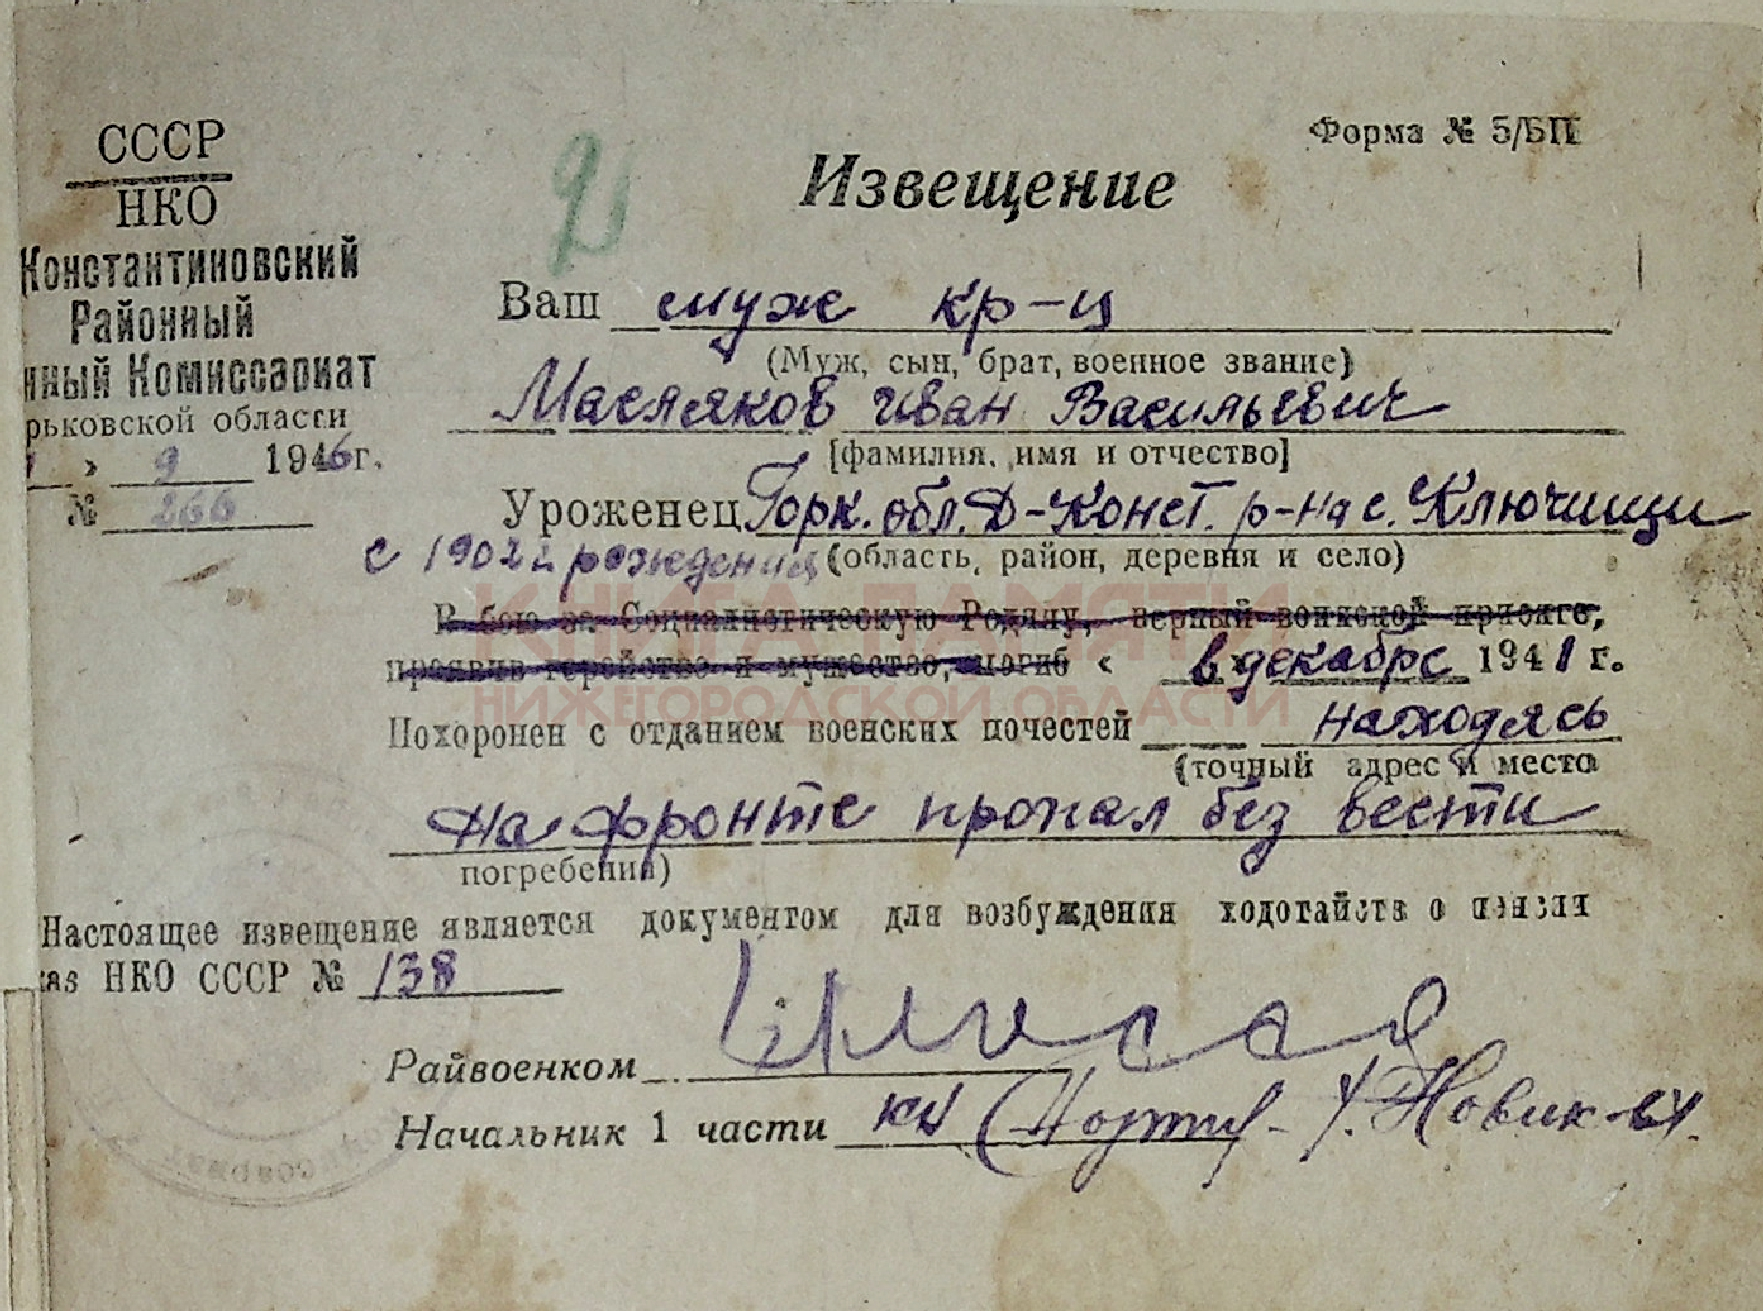 Форма № 5/БП
СССР
НКО
Константиновский
Районный
нный Комиссариат
рьковской области
» 9 1946 г.
№ 266
2
Извещение
Ваш муж кр-ц
(Муж, сын, брат, военное звание)
Масляков Иван Васильевич
[фамилия, имя и отчество]
Уроженец Горк. обл. Д-Конст. р-на с. Ключищи
с 1902 г рождения (область, район, деревня и село)
В бою за Социалистическую Родину, верный воинской присяге,
проявив геройство и мужество, погиб « в декабре 1941 г.
КНИГА ПАМЯТИ
НИЖЕГОРОДСКОЙ ОБЛАСТИ
Похоронен с отданием военских почестей находясь
(точный адрес и место
на фронте пропал без вести
погребения)
Настоящее извещение является документом для возбуждения ходотайств о пенсии
каз НКО СССР № 138
Райвоенком
Начальник 1 части